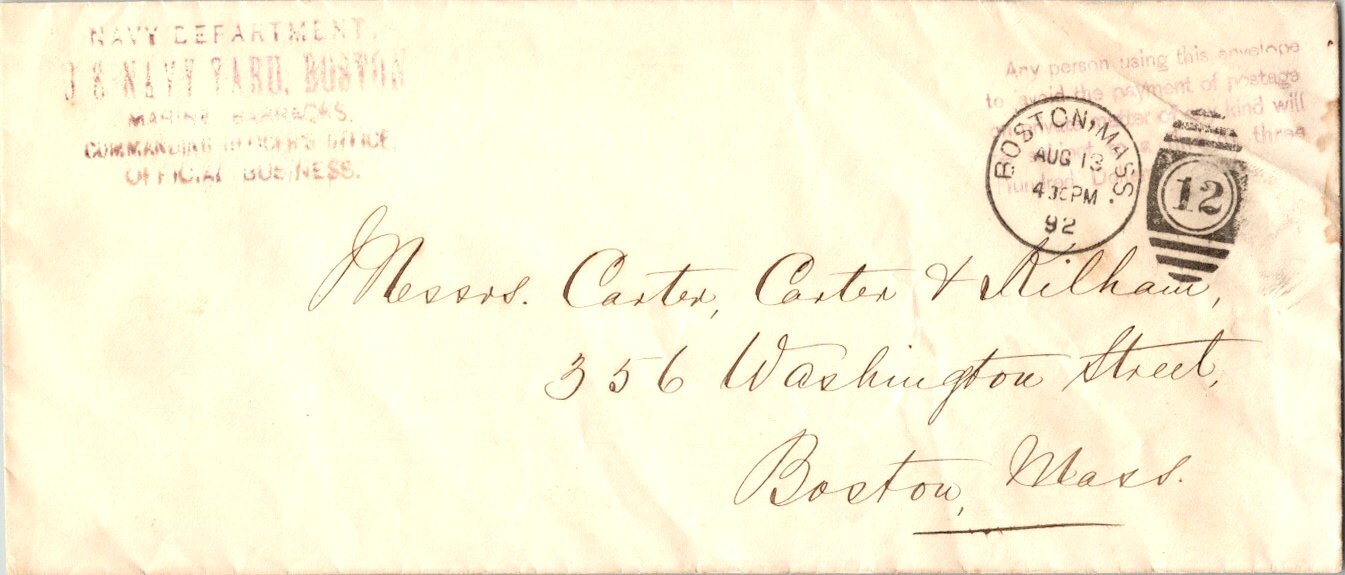 NAVY DEPARTMENT,
U S NAVY YARD, BOSTON
MARINE BARRACKS,
COMMANDING OFFICER'S OFFICE,
OFFICIAL BUSINESS.
Any person using this envelope
to avoid the payment of postage
matter of any kind will
three
Hundred
BOSTON, MASS.
AUG 13
4 30 PM
92
12
Messrs. Carter, Carter & Kilham,
356 Washington Street,
Boston, Mass.